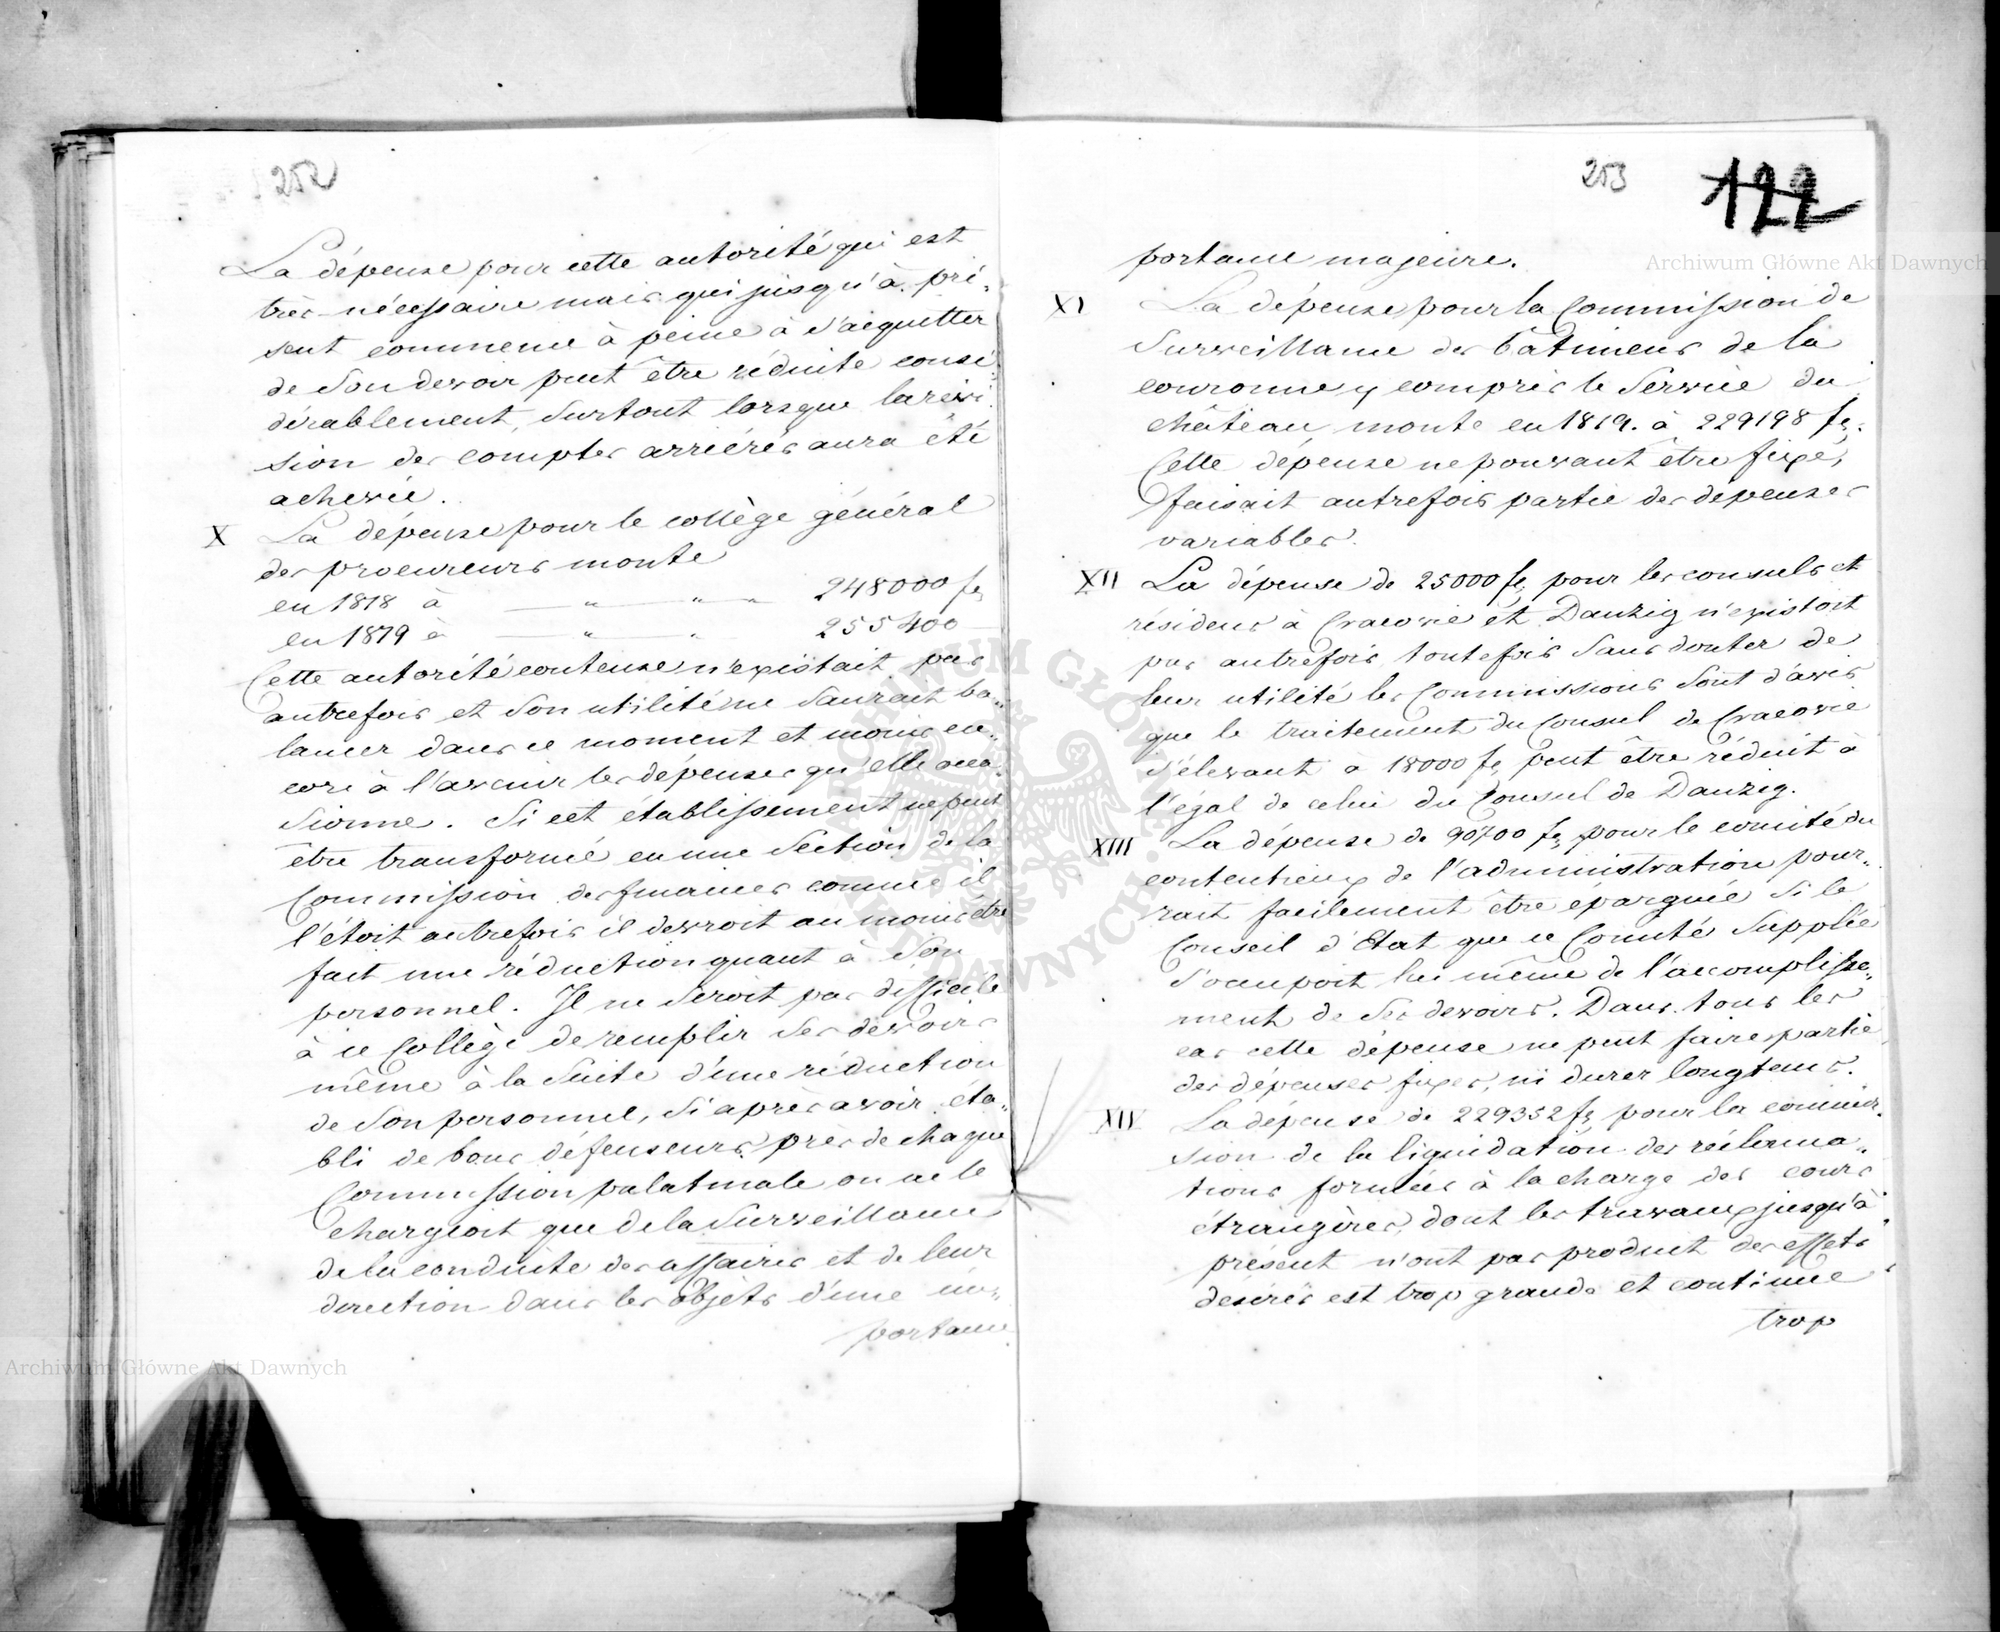 252
La dépense pour cette autorité qui est
très nécessaire mais qui jusqu'à pré-
sent commence à peine à s'acquitter
de son devoir peut être réduite consi-
dérablement, surtout lorsque la révi-
sion des comptes arriérés aura été
achevée.
X La dépense pour le collège général
des procureurs monte
en 1818 à — " — " — " — 248000 fl,
en 1819 à — " — " — 255400 —
Cette autorité couteuse n'existait pas
autrefois et son utilité ne saurait ba-
lancer dans ce moment et moins en-
core à l'avenir les dépenses qu'elle occa-
sionne. Si cet établissement ne peut
être transformé en une Section de la
Commission des finances comme il
l'étoit autrefois il devroit au moins être
fait une réduction quant à son
personnel. Il ne seroit pas difficile
à ce Collège de remplir ses devoirs
même à la suite d'une réduction
de son personnel, si après avoir éta-
bli de bons défenseurs près de chaque
Commission palatinale on ne le
chargeoit que de la surveillance
de la conduite des affaires et de leur
direction dans les objets d'une im-
portance
253
122
portance majeure.
XI La dépense pour la Commission de
Surveillance des bâtimens de la
couronne y compris le Service du
château monte en 1819. à 229198 fl,.
Cette dépense ne pouvant être fixe,
faisait autrefois partie des dépenses
variables.
XII La dépense de 25000 fl, pour les consuls et
résidens à Cracovie et Danzig n'existoit
pas autrefois, toutefois sans douter de
leur utilité les Commissions sont d'avis
que le traitement du Consul de Cracovie
s'élevant à 18000 fl, peut être réduit à
l'égal de celui du Consul de Danzig.
XIII La dépense de 90700 fl, pour le comité du
contentieux de l'administration pour-
rait facilement être épargnée si le
Conseil d'Etat que ce Comité supplée
s'occupoit lui même de l'accomplisse-
ment de ses devoirs. Dans tous les
cas cette dépense ne peut faire partie
des dépenses fixes, ni durer longtems.
XIV La dépense de 229352 fl, pour la commis-
sion de la liquidation des réclama-
tions formées à la charge des cours
étrangères, dont les travaux jusqu'à
présent n'ont pas produit des effets
désirés est trop grande et continue
trop
Archiwum Główne Akt Dawnych
Archiwum Główne Akt Dawnych
ARCHIWUM GŁÓWNE AKT DAWNYCH